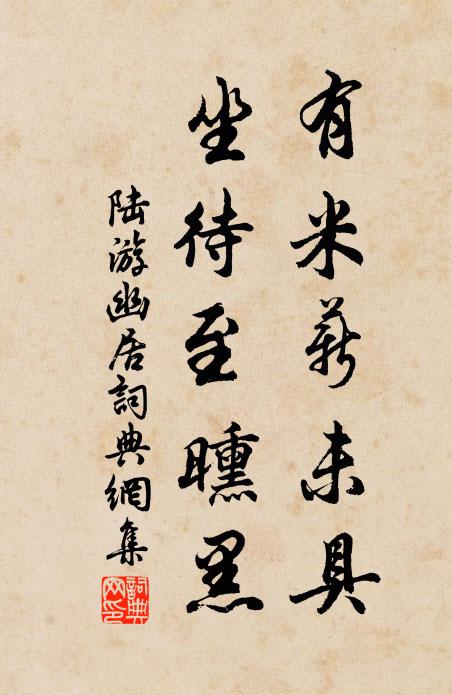 有米薪未具
坐待至曛黑
陆游幽居詞典網集
詞典网印